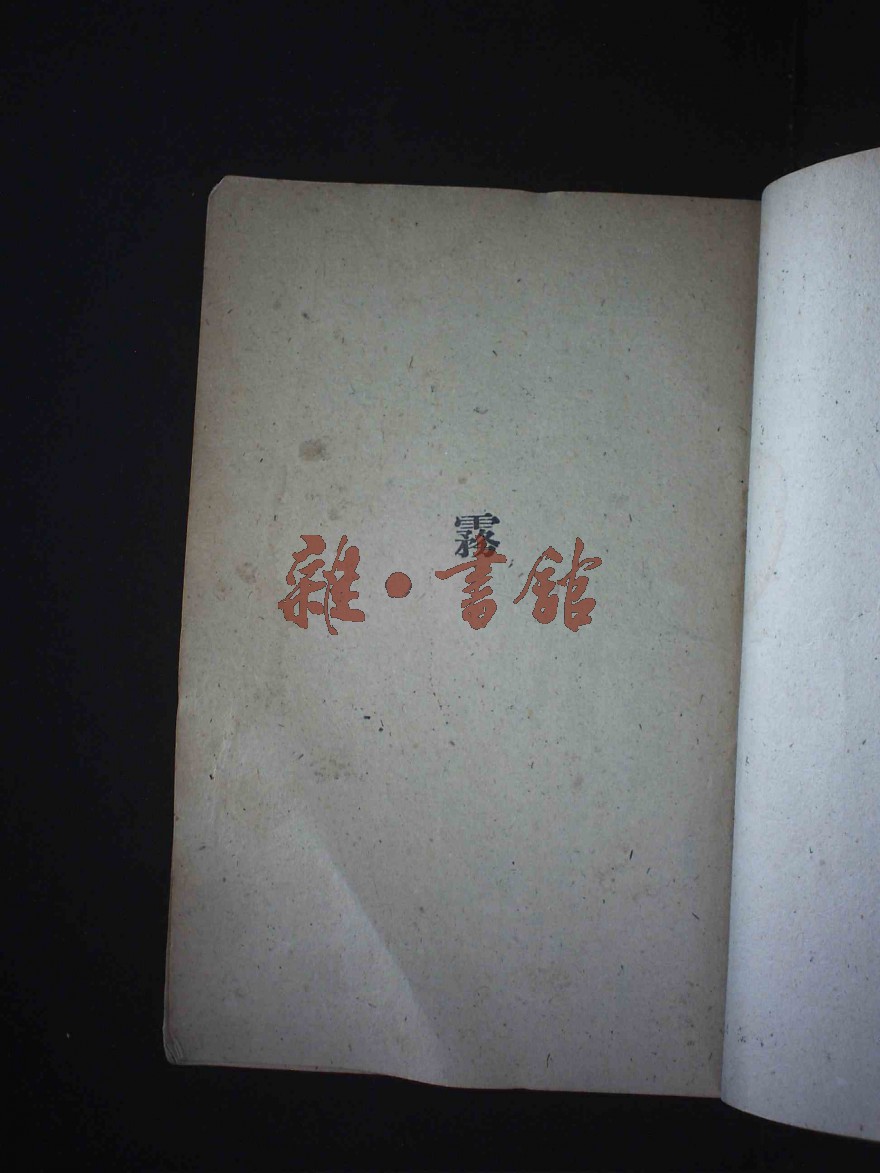 霧
雜·書館